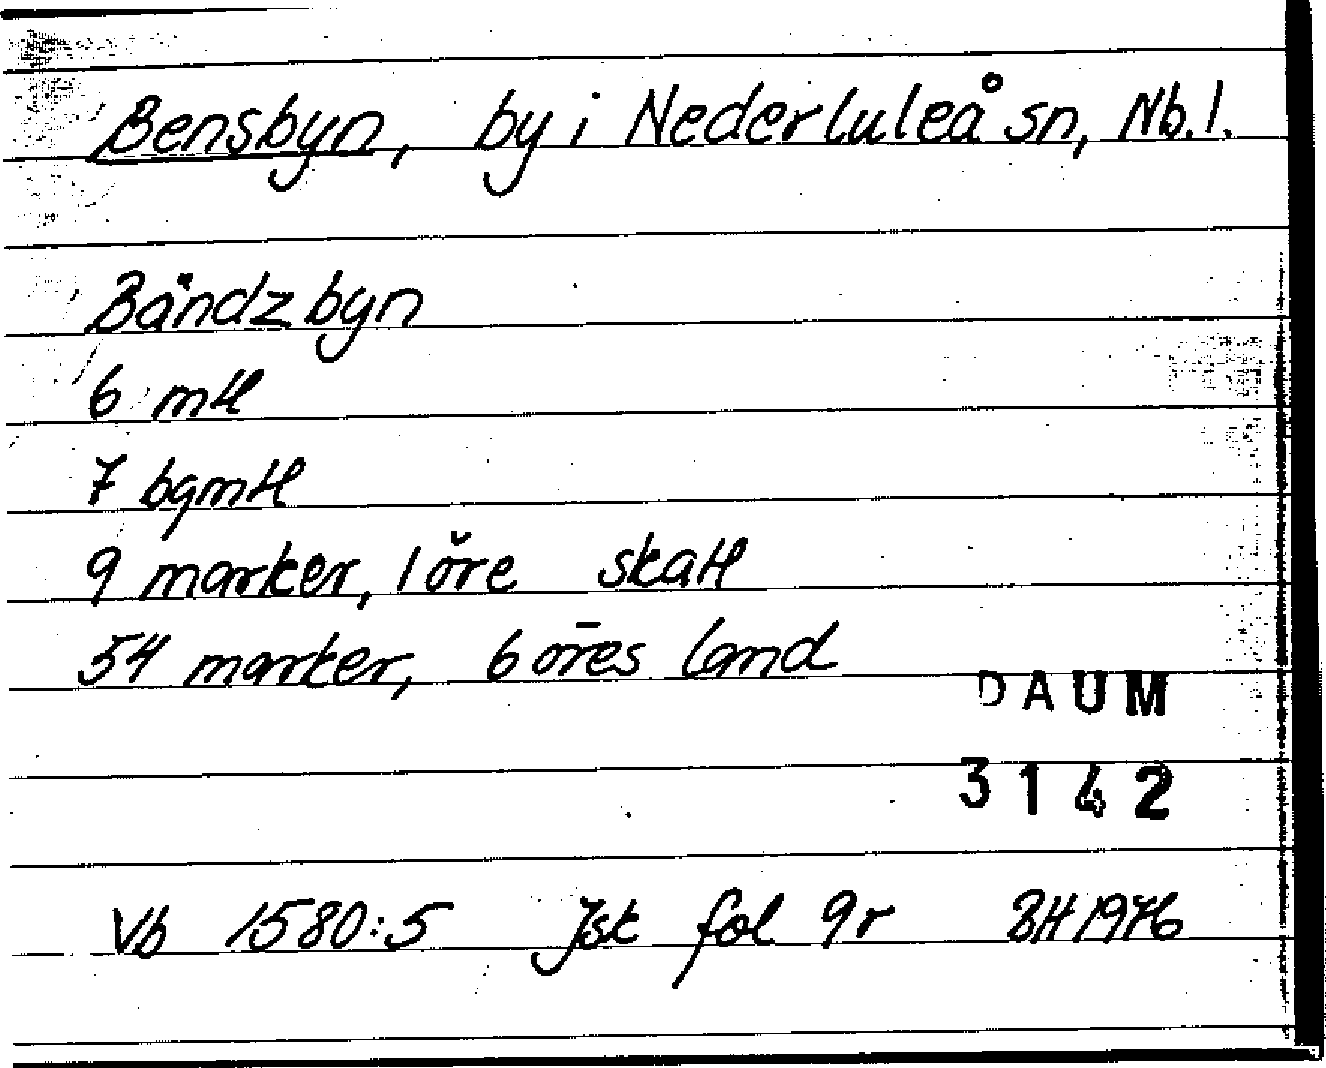 Bensbyn, by i Nederluleå sn, Nb. l.
Bändzbyn
6 mtl
7 bgmtl
9 marker, 1 öre skatt
54 marker, 6 öres land
DAUM
3142
Vb 1580:5 Jsk fol 9r BH 1976